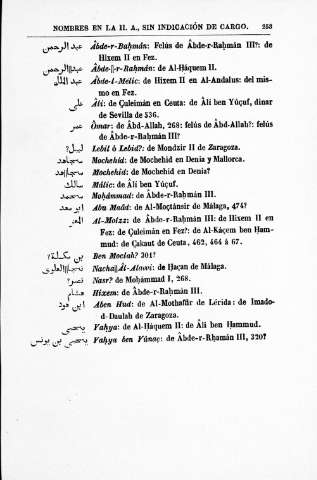 NOMBRES EN LA II. A., SIN INDICACIÓN DE CARGO. 253
عبد الرحمن Âbde-r-Baḥmán: Felús de Âbde-r-Raḥmán III?: de
Hixem II en Fez.
عبد||الرحمن Âbde-||-r-Raḥmán: de Al-Ḥáquem II.
عبد الملك Âbde-l-Mélic: de Hixem II en Al-Andalus: del mis-
mo en Fez.
على Âlí: de Çuleimán en Ceuta: de Âlí ben Yúçuf, dinar
de Sevilla de 536.
عمر Ômar: de Âbd-Allah, 268: felús de Âbd-Allah?: felús
de Âbde-r-Raḥmán III?
لبيل? Lebil ó Lebid?: de Mondzir II de Zaragoza.
مجاهد Mochehid: de Mochehid en Denia y Mallorca.
مجا||هد Mochehid: de Mochehid en Denia?
مالك Málic: de Âlí ben Yúçuf.
محمد Moḥámmad: de Âbde-r-Raḥmán III.
ابو سعد Abu Maâd: de Al-Moçtánsir de Málaga, 474?
المعز Al-Moîzz: de Âbde-r-Raḥmán III: de Hixem II en
Fez: de Çuleimán en Fez?: de Al-Káçem ben Ḥam-
mud: de Çakaut de Ceuta, 462, 464 á 67.
بن مكسلة? Ben Moclah? 301?
نجا||العلوى Nacha||Al-Alawi: de Ḥaçan de Málaga.
نصر? Nasr? de Moḥámmad I, 268.
هشام Hixem: de Âbde-r-Raḥmán III.
ابن هود Aben Hud: de Al-Mothafár de Lérida: de Imado-
d-Daulah de Zaragoza.
يحيى Yahya: de Al-Ḥáquem II: de Âlí ben Ḥammud.
يحيى بن يونس Yaḥya ben Yúnaç: de Âbde-r-Rḥamán III, 320?